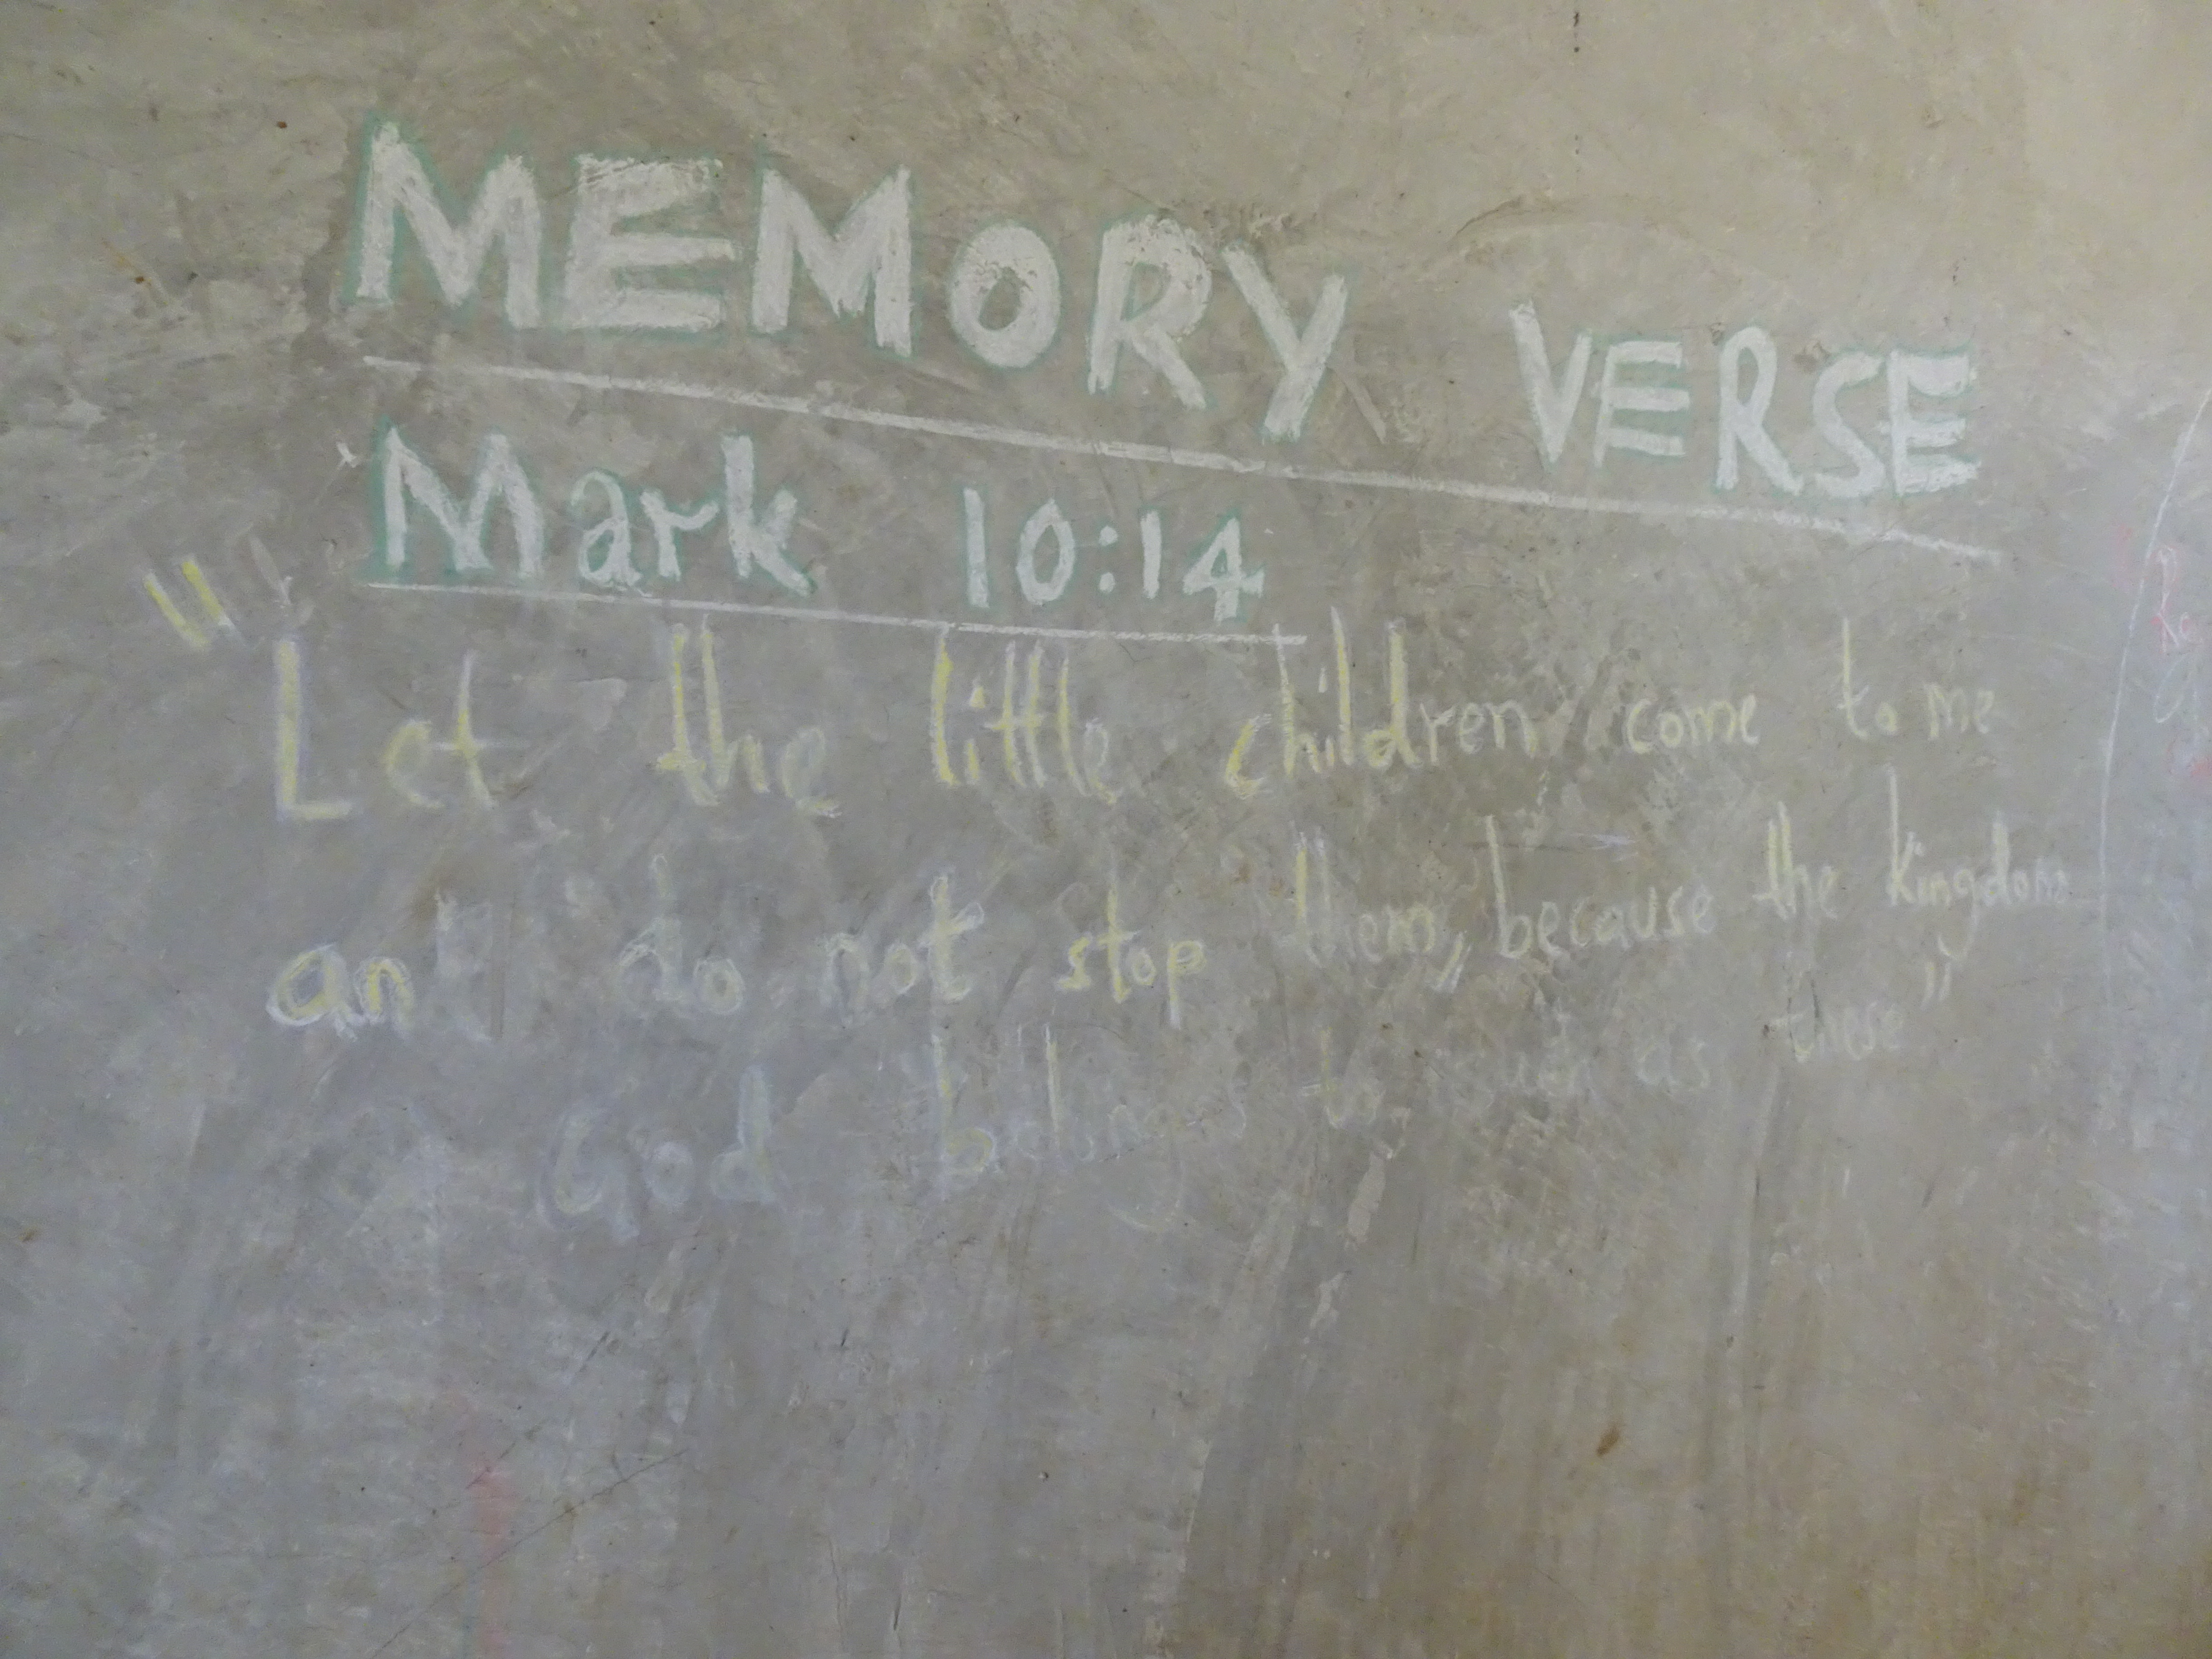 MEMORY VERSE
Mark 10:14
"Let the little children come to me
an do not stop them, because the kingdom
God belongs to such as these"